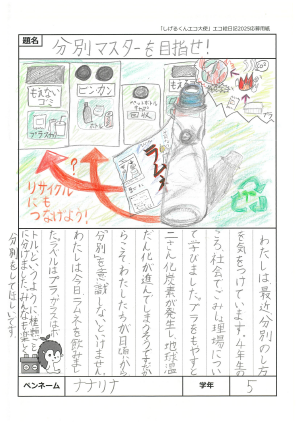 「しげるくんエコ大使」エコ絵日記2025応募用紙
題名
分別マスターを目指せ!
もえない
ゴミ
プラスチック
ビン・カン
ボトル
ペットボトル
キャップ
回収
ラムネ
?
リサイクル
にも
つなげよう!
わたしは最近、分別のし方
を気をつけています。4年生の
ころ、社会でごみ処理場につい
て学びました。プラをもやすと
二さん化炭素が発生し、地球温
だん化が進んでしまうそうです。だか
らこそ、わたしたちが日頃から
分別を意識しないといけません。
わたしは今日ラムネを飲みまし
た。ラベルはプラ、ガラスはボ
トル、というように種類ごと
に分けました。みんなも楽しく
分別をしてほしいです。
ペンネーム
ナナリナ
学年
5